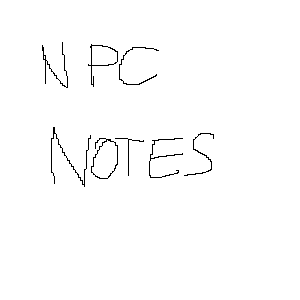 NPC
NOTES